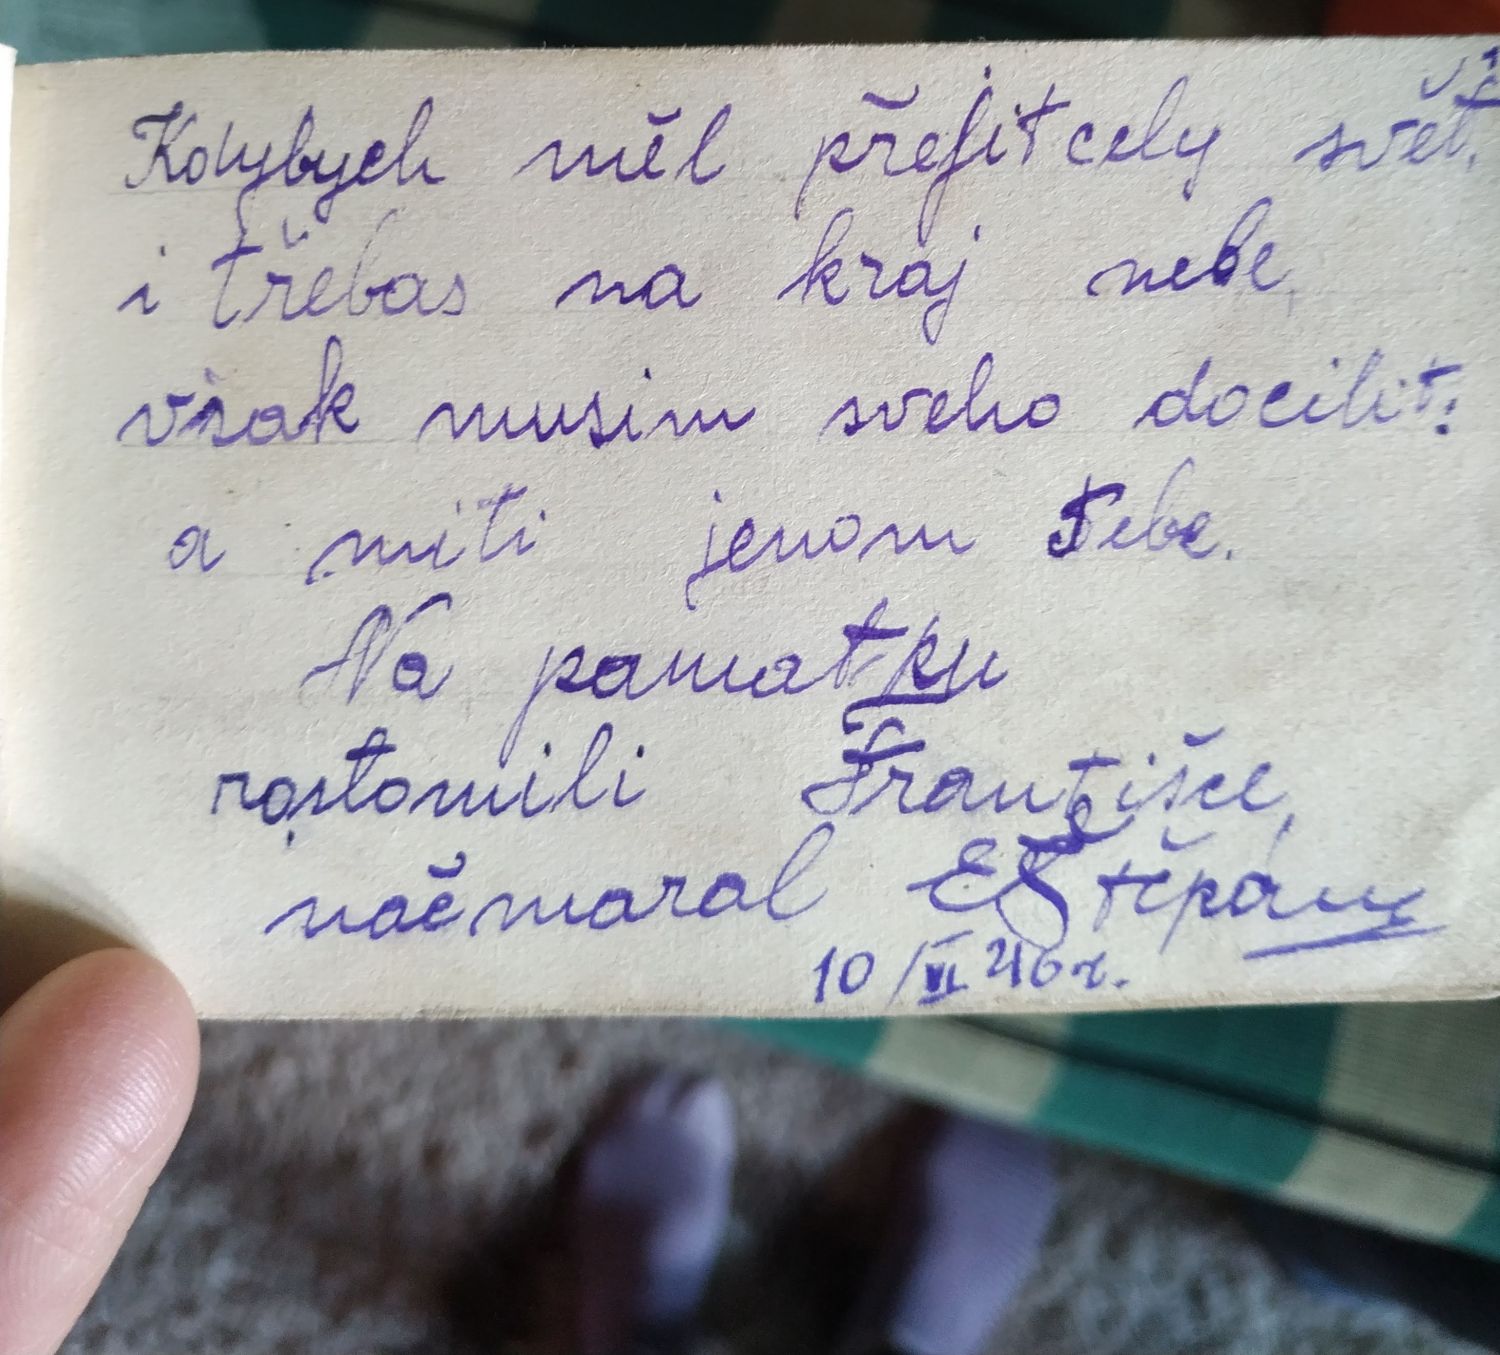 Kdybych měl přejit cely svět,
i třebas na kraj nebe,
však musim sveho docilit:
a miti jenom Tebe.
Na pamatku
roztomili Františce,
načmaral Štěpán
10/VI 46 r.